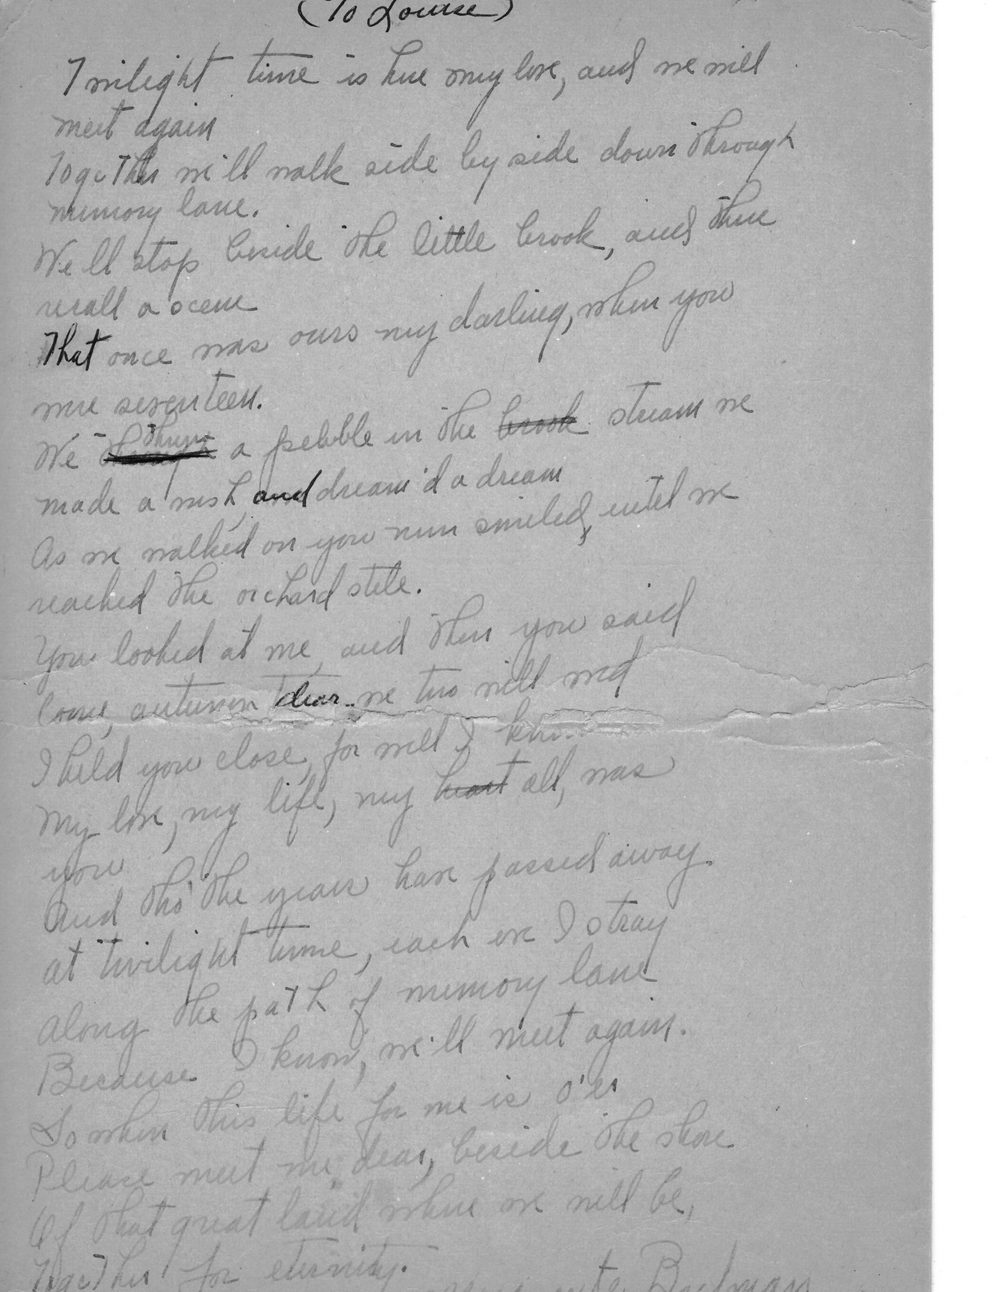 (To Louise)
Twilight time is here my love, and we will
meet again
Together we'll walk side by side down through
memory lane.
We'll stop beside the little brook, and there
recall a scene
That once was ours my darling, when you
were seventeen.
We threw a pebble in the brook stream we
made a wish, and dream'd a dream
As we walked on you were smiled, until we
reached the orchard stile.
You looked at me, and then you said
Come, autumn dear we two will wed
I held you close, for well I know
My love, my life, my heart all, was
you
And tho' the years have passed away.
at twilight time, each eve I stray
along the path of memory lane
Because I know, we'll meet again.
So when this life for me is o'er
Please meet me, dear, beside the shore
Of that great land where we will be,
Together for eternity.